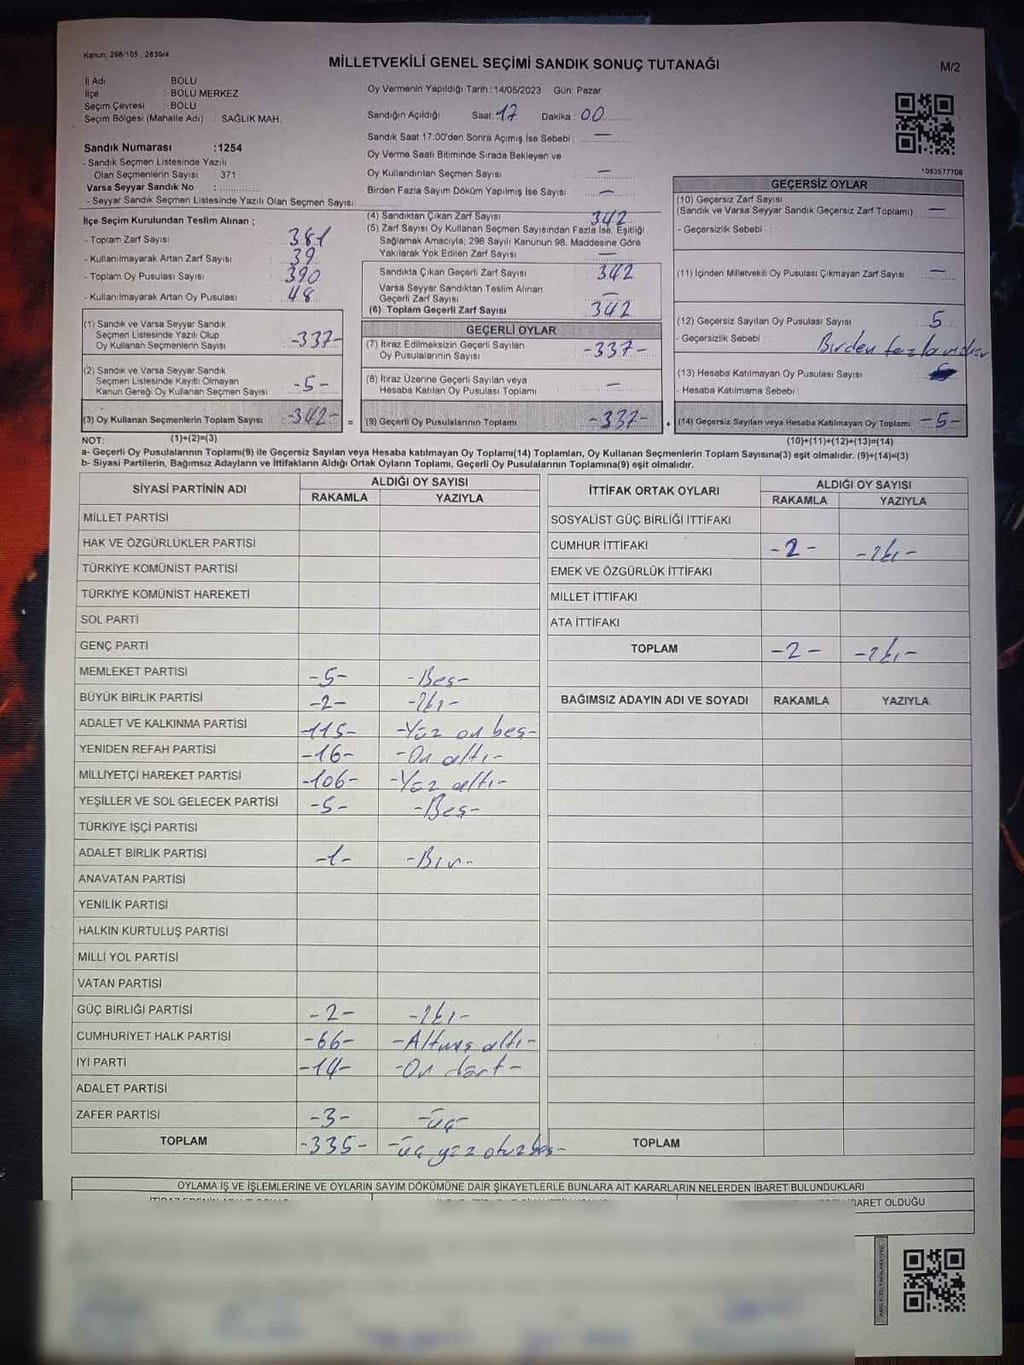 Kanun: 298/105 , 2839/4
MİLLETVEKİLİ GENEL SEÇİMİ SANDIK SONUÇ TUTANAĞI
M/2
İl Adı : BOLU
İlçe : BOLU MERKEZ
Seçim Çevresi : BOLU
Seçim Bölgesi (Mahalle Adı) : SAĞLIK MAH.
Oy Vermenin Yapıldığı Tarih :14/05/2023 Gün: Pazar
Sandığın Açıldığı Saat: 17 Dakika : 00
Sandık Saat 17:00'den Sonra Açılmış İse Sebebi : —
Oy Verme Saati Bitiminde Sırada Bekleyen ve
Oy Kullandırılan Seçmen Sayısı —
Birden Fazla Sayım Döküm Yapılmış İse Sayısı —
1083577708
Sandık Numarası :1254
- Sandık Seçmen Listesinde Yazılı
Olan Seçmenlerin Sayısı : 371
Varsa Seyyar Sandık No :
- Seyyar Sandık Seçmen Listesinde Yazılı Olan Seçmen Sayısı:
İlçe Seçim Kurulundan Teslim Alınan ;
- Toplam Zarf Sayısı 381
- Kullanılmayarak Artan Zarf Sayısı 39
- Toplam Oy Pusulası Sayısı 390
- Kullanılmayarak Artan Oy Pusulası 48
(1) Sandık ve Varsa Seyyar Sandık
Seçmen Listesinde Yazılı Olup
Oy Kullanan Seçmenlerin Sayısı -337-
(2) Sandık ve Varsa Seyyar Sandık
Seçmen Listesinde Kayıtlı Olmayan
Kanun Gereği Oy Kullanan Seçmen Sayısı -5-
(3) Oy Kullanan Seçmenlerin Toplam Sayısı -342- =
(1)+(2)=(3)
(4) Sandıktan Çıkan Zarf Sayısı 342
(5) Zarf Sayısı Oy Kullanan Seçmen Sayısından Fazla İse, Eşitliği
Sağlamak Amacıyla; 298 Sayılı Kanunun 98. Maddesine Göre
Yakılarak Yok Edilen Zarf Sayısı —
Sandıkta Çıkan Geçerli Zarf Sayısı 342
Varsa Seyyar Sandıktan Teslim Alınan
Geçerli Zarf Sayısı —
(6) Toplam Geçerli Zarf Sayısı 342
GEÇERLİ OYLAR
(7) İtiraz Edilmeksizin Geçerli Sayılan
Oy Pusulalarının Sayısı -337-
(8) İtiraz Üzerine Geçerli Sayılan veya
Hesaba Katılan Oy Pusulası Toplamı —
(9) Geçerli Oy Pusulalarının Toplamı -337- +
GEÇERSİZ OYLAR
(10) Geçersiz Zarf Sayısı
(Sandık ve Varsa Seyyar Sandık Geçersiz Zarf Toplamı) —
- Geçersizlik Sebebi :
(11) İçinden Milletvekili Oy Pusulası Çıkmayan Zarf Sayısı —
(12) Geçersiz Sayılan Oy Pusulası Sayısı 5
- Geçersizlik Sebebi Birden fazla
(13) Hesaba Katılmayan Oy Pusulası Sayısı
- Hesaba Katılmama Sebebi
(14) Geçersiz Sayılan veya Hesaba Katılmayan Oy Toplamı -5-
(10)+(11)+(12)+(13)=(14)
NOT:
a- Geçerli Oy Pusulalarının Toplamı(9) ile Geçersiz Sayılan veya Hesaba Katılmayan Oy Toplamı(14) Toplamları, Oy Kullanan Seçmenlerin Toplam Sayısına(3) eşit olmalıdır. (9)+(14)=(3)
b- Siyasi Partilerin, Bağımsız Adayların ve İttifakların Aldığı Ortak Oyların Toplamı, Geçerli Oy Pusulalarının Toplamına(9) eşit olmalıdır.
SİYASİ PARTİNİN ADI ALDIĞI OY SAYISI
RAKAMLA YAZIYLA
MİLLET PARTİSİ
HAK VE ÖZGÜRLÜKLER PARTİSİ
TÜRKİYE KOMÜNİST PARTİSİ
TÜRKİYE KOMÜNİST HAREKETİ
SOL PARTİ
GENÇ PARTİ
MEMLEKET PARTİSİ -5- -Beş-
BÜYÜK BİRLİK PARTİSİ -2- -İki-
ADALET VE KALKINMA PARTİSİ -115- -Yüz on beş-
YENİDEN REFAH PARTİSİ -16- -On altı-
MİLLİYETÇİ HAREKET PARTİSİ -106- -Yüz altı-
YEŞİLLER VE SOL GELECEK PARTİSİ -5- -Beş-
TÜRKİYE İŞÇİ PARTİSİ
ADALET BİRLİK PARTİSİ -1- -Bir-
ANAVATAN PARTİSİ
YENİLİK PARTİSİ
HALKIN KURTULUŞ PARTİSİ
MİLLİ YOL PARTİSİ
VATAN PARTİSİ
GÜÇ BİRLİĞİ PARTİSİ -2- -İki-
CUMHURİYET HALK PARTİSİ -66- -Altmış altı-
İYİ PARTİ -14- -On dört-
ADALET PARTİSİ
ZAFER PARTİSİ -3- -üç-
TOPLAM -335- -üç yüz otuz beş-
İTTİFAK ORTAK OYLARI ALDIĞI OY SAYISI
RAKAMLA YAZIYLA
SOSYALİST GÜÇ BİRLİĞİ İTTİFAKI
CUMHUR İTTİFAKI -2- -İki-
EMEK VE ÖZGÜRLÜK İTTİFAKI
MİLLET İTTİFAKI
ATA İTTİFAKI
TOPLAM -2- -İki-
BAĞIMSIZ ADAYIN ADI VE SOYADI RAKAMLA YAZIYLA
TOPLAM
OYLAMA İŞ VE İŞLEMLERİNE VE OYLARIN SAYIM DÖKÜMÜNE DAİR ŞİKAYETLERLE BUNLARA AİT KARARLARIN NELERDEN İBARET BULUNDUKLARI
İBARET OLDUĞU